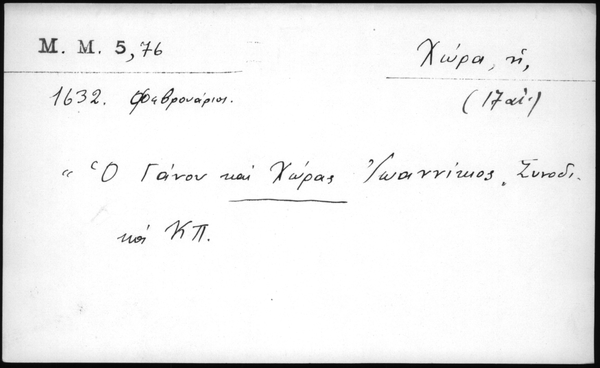 M. M. 5, 76
Χώρα, ἡ,
1632. Φεβρουάριος.
(17 αἰ.)
“ Ὁ Γάνου καὶ Χώρας Ἰωαννίκιος „ Συνοδι-
καὶ ΚΠ.